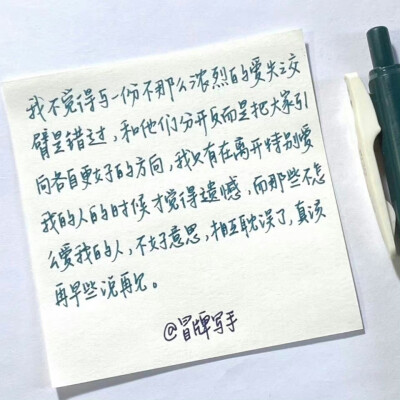 我不觉得与一份不那么浓烈的爱失之交
臂是错过，和他们分开反而是把大家引
向各自更好的方向，我只有在离开特别爱
我的人的时候才觉得遗憾，而那些不怎
么爱我的人，不好意思，相互耽误了，真该
再早些说再见。
@冒牌写手